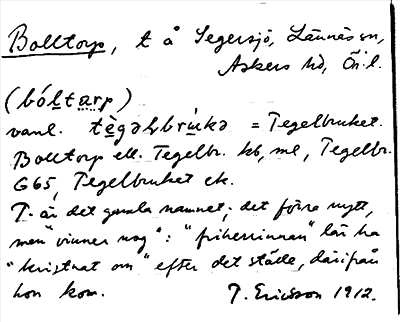 Bolltorp, t å Segersjö, Lännäs sn,
Askers hd, Ör. l.
(bóltarp)
vanl. tègəlbrukə = Tegelbruket.
Bolltorp ell. Tegelbr. kb, ml, Tegelbr.
G65, Tegelbruket ek.
T. är det gamla namnet; det förra nytt,
men "vinner nog": "friherrinnan" lär ha
"kristnat om" efter det ställe, därifrån
hon kom. T. Ericsson 1912.